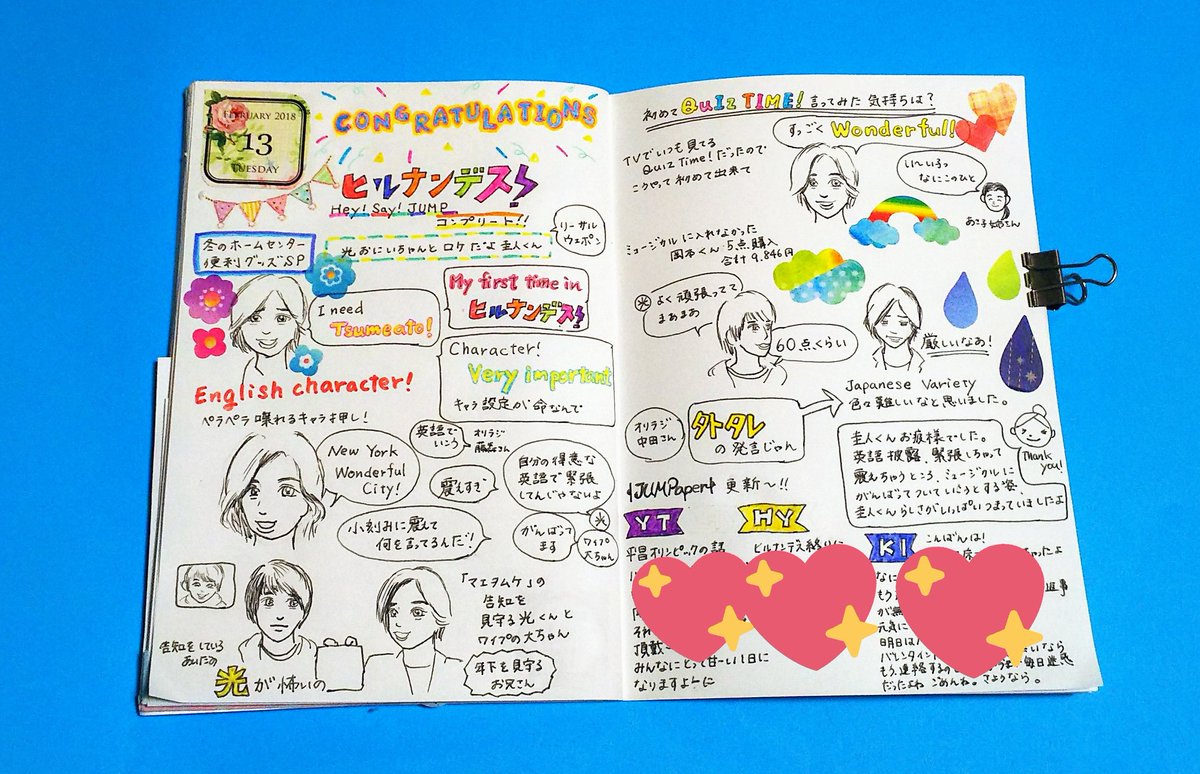 FEBRUARY 2018
13
TUESDAY
CONGRATULATIONS
ヒルナンデス!
Hey! Say! JUMP
コンプリート!!
冬のホームセンター
便利グッズSP
光おにいちゃんと ロケだよ 圭人くん
リーサル
ウェポン
I need
Tsumeato!
My first time in
ヒルナンデス!
Character!
Very important
キャラ設定が命なんで
English character!
ペラペラ喋れるキャラ押し!
New York
Wonderful
City!
英語で
いこう
オリラジ
藤森さん
震えすぎ
自分の得意な
英語で緊張
してんじゃないよ
小刻みに震えて
何を言ってるんだ!
がんばって
ます
光
ワイプ
大ちゃん
「マエヲムケ」の
告知を
見守る光くんと
ワイプの大ちゃん
年下を見守る
お兄さん
告知をしている
あいだの
光が怖いの
初めて QUIZ TIME! 言ってみた 気持ちは?
すっごく Wonderful!
TVでいつも見てる
Quiz Time!だったので
こうやって初めて出来て
い〜いろっ
なにこのひと
ミュージカルに入れなかった
岡本くん 5点購入
合計 9,846円
光
よく頑張ってて
まあまあ
60点くらい
厳しいなあ!
Japanese Variety
色々難しいなと思いました。
オリラジ
中田さん
外タレ
の発言じゃん
圭人くんお疲様でした。
英語披露、緊張しちゃって
震えちゃうところ、ミュージカルに
がんばってついていこうとする姿、
圭人くんらしさがいっぱいつまっていましたよ
Thank
you!
JUMPaper 更新〜!!
YT
HY
KI
平昌オリンピックの話
こんばんは!
みんなにとって甘〜い1日に
なりますよーに
元気に
明日は
バレンタイン
だったよね ごめんね。さようなら。